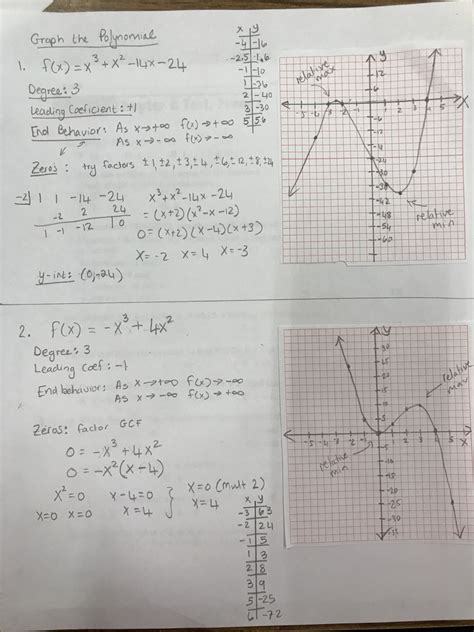 Graph the Polynomial
1. f(x) = x³ + x² - 14x - 24
Degree: 3
Leading Coeficient: +1
End Behavior: As x→+∞ f(x)→+∞
As x→-∞ f(x)→-∞
Zeros: try factors ±1, ±2, ±3, ±4, ±6, ±12, ±8, ±24
-2| 1 1 -14 -24
-2 2 24
1 -1 -12 |0
x³+x²-14x-24
= (x+2)(x²-x-12)
0=(x+2)(x-4)(x+3)
x=-2 x=4 x=-3
y-int: (0,-24)
x y
-4 -16
-2.5
-1 -10
1 -36
2 -40
3 -30
5 56
relative max
relative min
y
x
2. f(x) = -x³ + 4x²
Degree: 3
Leading Coef: -1
End behavior: As x→+∞ f(x)→-∞
As x→-∞ f(x)→+∞
Zeros: factor GCF
0 = -x³ + 4x²
0 = -x²(x-4)
x²=0 x-4=0
x=0 x=0 x=4
x=0 (mult 2)
x=4
x y
-3 63
-2 24
-1 5
1 3
2 8
3 9
5 -25
6 -72
relative max
relative min
y
x